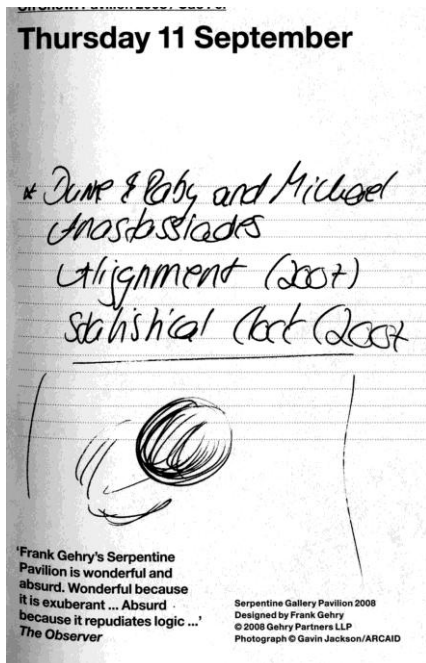 Thursday 11 September
* Dune & Raby and Michael
Anastassiades
Alignment (2007)
Statistical Clock (2007
'Frank Gehry's Serpentine
Pavilion is wonderful and
absurd. Wonderful because
it is exuberant ... Absurd
because it repudiates logic ...'
The Observer
Serpentine Gallery Pavilion 2008
Designed by Frank Gehry
© 2008 Gehry Partners LLP
Photograph © Gavin Jackson/ARCAID